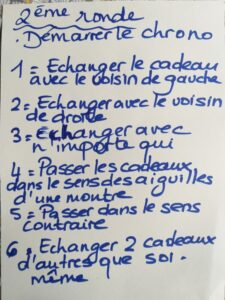 2ème ronde
. Démarrer le chrono
1 = Echanger le cadeau
avec le voisin de gauche
2 = Echanger avec le voisin
de droite
3 = Echanger avec
n'importe qui
4 = Passer les cadeaux
dans le sens des aiguilles
d'une montre
5 = Passer dans le sens
contraire
6 = Echanger 2 cadeaux
d'autres que soi-
même